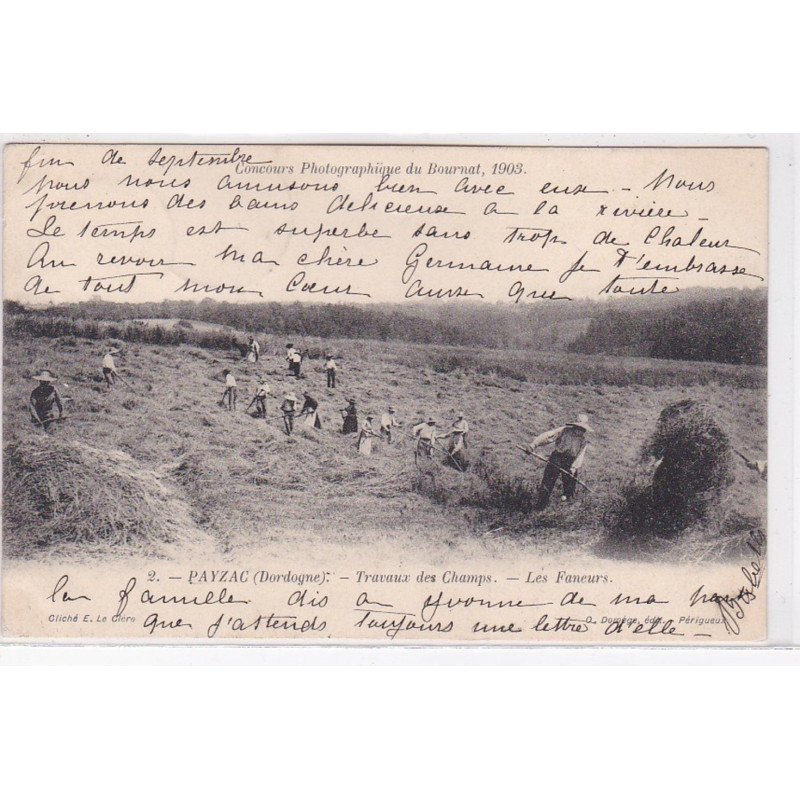 fin de septembre
Concours Photographique du Bournat, 1903.
nous nous amusons bien avec eux - Nous
prenons des bains délicieux a la rivière -
Le temps est superbe sans trop de Chaleur
Au revoir Ma chère Germaine Je t'embrasse
de tout mon Cœur ainsi que toute
2. — PAYZAC (Dordogne). — Travaux des Champs. — Les Faneurs.
la famille dis a yvonne de ma part
Cliché E. Le Clerc
O. Domège, édit. Périgueux
que j'attends toujours une lettre d'elle -